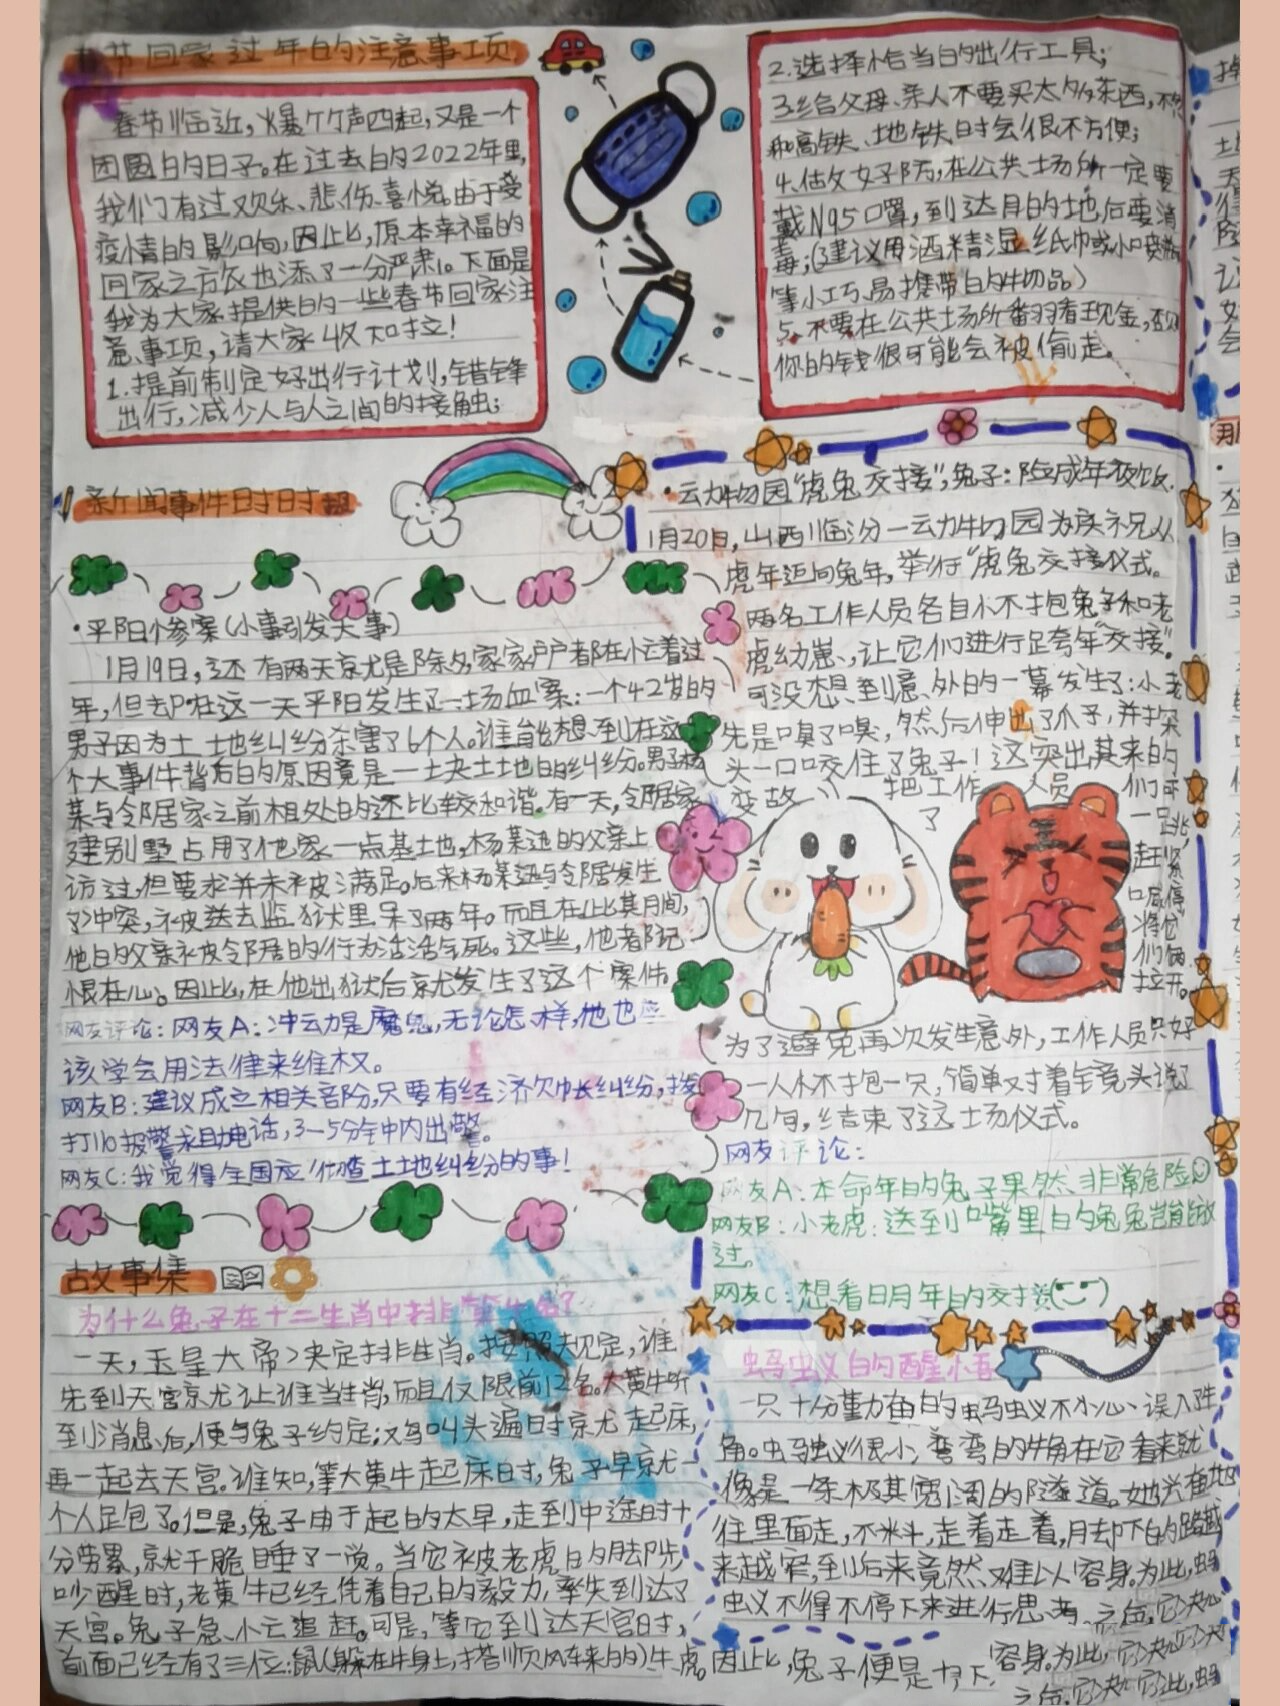 春节回家过年的注意事项
春节临近,爆竹声四起,又是一个
团圆的日子。在过去的2022年里,
我们有过欢乐、悲伤、喜悦。由于受
疫情的影响,因此,原本幸福的
回家之方式也添了一分严肃。下面是
我为大家提供的一些春节回家注
意事项,请大家收知拉!
1.提前制定好出行计划,错锋
出行,减少人与人之间的接触;
2.选择恰当的出行工具;
3.给父母、亲人不要买太多东西,不然
和高铁、地铁时会很不方便;
4.估攵好防,在公共场所一定要
戴N95口罩,到达目的地后要消
毒;(建议用酒精湿纸巾或小喷瓶
等小巧、易携带的物品)
5.不要在公共场所翻看现金,否则
你的钱很可能会被偷走。
新闻事件时时报
·平阳惨案(小事引发大事)
1月19日,还有两天就是除夕,家家户户都在忙着过
年,但却在这一天平阳发生了一场血案:一个42岁的
男子因为土地纠纷杀害了6个人。谁能想到在这
个大事件背后的原因竟是一块土地的纠纷。男子杨
某与邻居家之前相处的还比较和谐。有一天,邻居家
建别墅占用了他家一点基土地,杨某迅的父亲上
访过,但要求并未被满足。后来杨某迅与邻居发生
了冲突,被送去监狱里呆了两年。而且在此其月间,
他的父亲被邻居的行为活活气死。这些,他都记
恨在心。因此,在他出狱后就发生了这个案件。
网友评论:网友A:冲动是魔鬼,无论怎样,他也应
该学会用法律来维权。
网友B:建议成立相关部份,只要有经济欠帐纠纷,拨
打110报警求助电话,3-5分钟内出警。
网友C:我觉得全国应彻查土地纠纷的事!
·云动物园“虎兔交接”,兔子:险成年夜饭.
1月20日,山西临汾一动物园为庆祝从
虎年迈向兔年,举行“虎兔交接仪式。
两名工作人员各自怀抱兔子和老
虎幼崽,让它们进行足夸年“交接”。
可没想到意外的一幕发生了:小老
先是嗅了嗅,然后伸出了爪子,并探
头一口咬住了兔子!这突出其来的
变故把工作人员们吓
了一跳,
赶紧
口暂停
将它
们俩
拉开。
为了避免再次发生意外,工作人员只好
一人怀抱一只,简单对着镜头说了
几句,结束了这场仪式。
网友评论:
网友A:本命年的兔子果然非常危险
网友B:小老虎:送到嘴里的兔兔岂能放
过。
网友C:想看明年的交接
故事集
为什么兔子在十二生肖中排第四名?
一天,玉皇大帝决定排生肖。按照规定,谁
先到天宫就让谁当生肖,而且仅限前12名。大黄牛听
到消息后,便与兔子约定;鸡叫头遍时就起床,
再一起去天宫。谁知,等大黄牛起床时,兔子早就一
个人走包了。但是,兔子由于起的太早,走到中途时十
分劳累,就干脆睡了一觉。当它被老虎的脚步
吵醒时,老黄牛已经凭着自己的毅力,率先到达了
天宫。兔子急忙追赶。可是,等它到达天宫时,
前面已经有了三位:鼠(躲在牛身上,搭顺风车来的)牛、虎。因此,兔子便是
蚂蚁的醒悟
一只十分勤奋的蚂蚁不小心误入牛
角。蚂蚁很小,弯弯的牛角在它看来就
像是一条极其宽阔的隧道。她兴奋地
往里面走,不料,走着走着,脚下的路越
来越窄,到后来竟然难以容身。为此,蚂
蚁不得不停下来进行思考。之后,它决心
容身。为此,它决